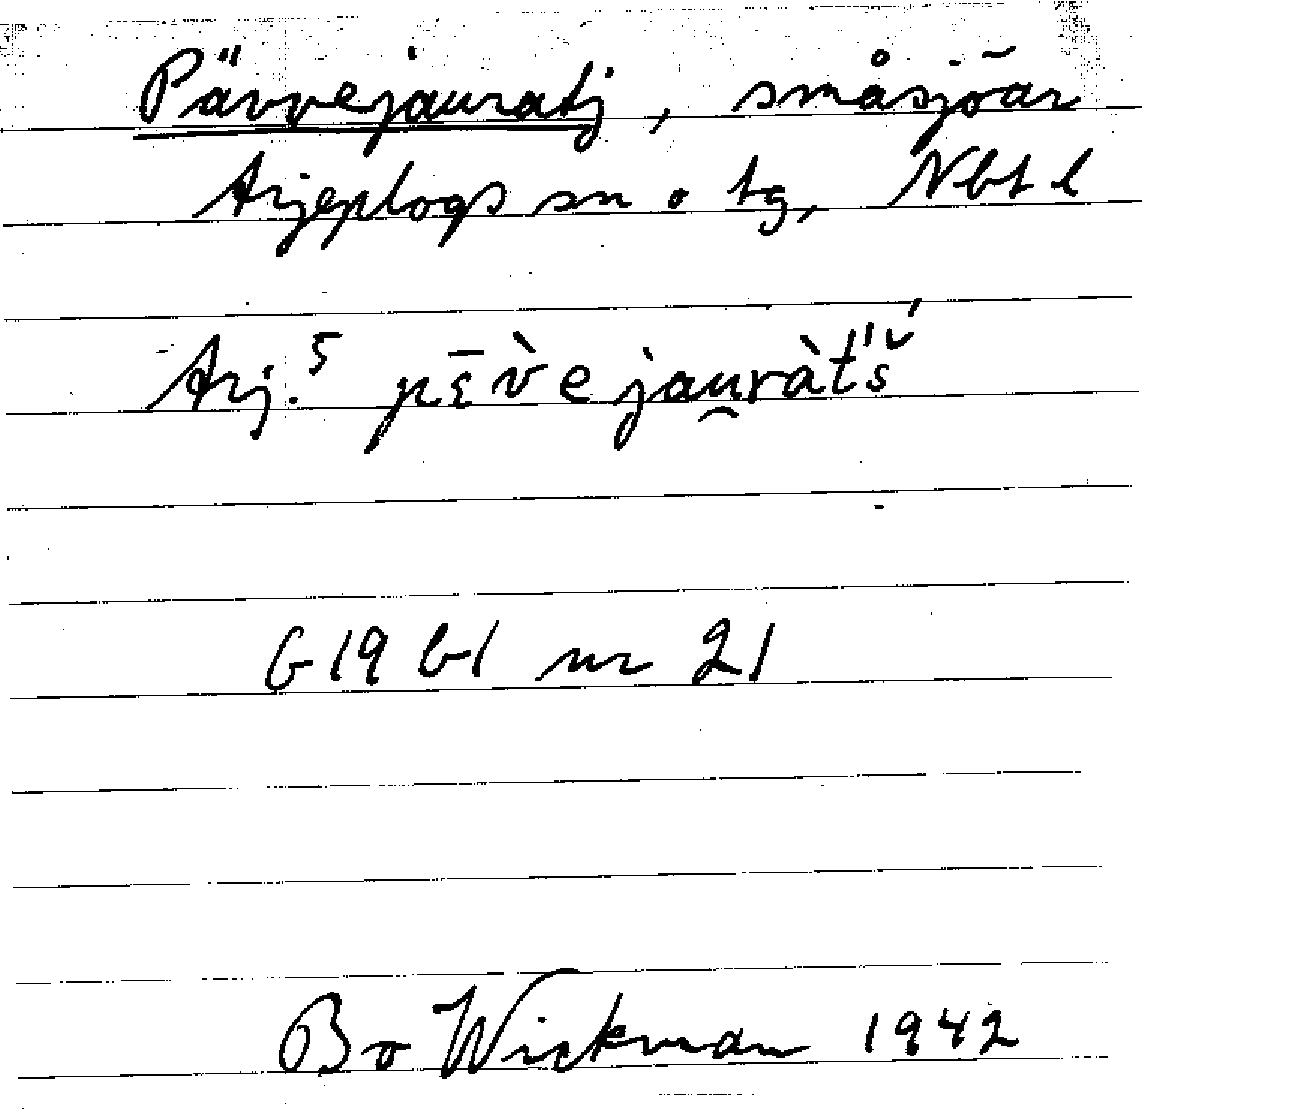 Pävvejauratj, småsjöar
Arjeplogs sn o tg, Nbt l
Arj.5 pɛ̄v̀ejau̯ràt́š́
G 19 bl nr 21
Bo Wickman 1942